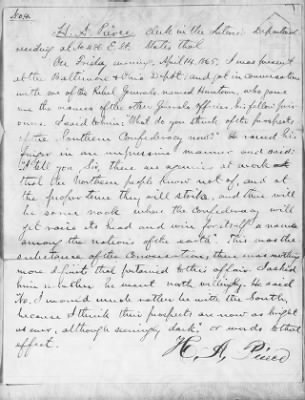 H. A. Pierce clerk in the Interior Department
residing at No 458 E St. States that
On Friday evening April 14, 1865, I was present
at the Baltimore & Ohio Depot; and got in conversation
with one of the Rebel Generals named Huntown, who gave
me the names of the other Generals officers his fellow pris-
oners. I said to him: What do you think of the prospects
of the "Southern Confederacy now?" He raised his
finger in an impressive manner and said:
"I tell you, Sir, there are agencies at work
that the Northern people know not of, and at
the proper time they will strike, and there will
be some nook where the confederacy will
yet raise its head and win for itself a name
among the nations of the earth". This was the
substance of the conversation, there was nothing
more definite that pertained to this affair. I asked
him whether he went north willingly. He said
No, I would much rather be with the South,
because I think their prospects are now as bright
as ever, although seemingly dark." or words to that
effect.
H. A. Pierce